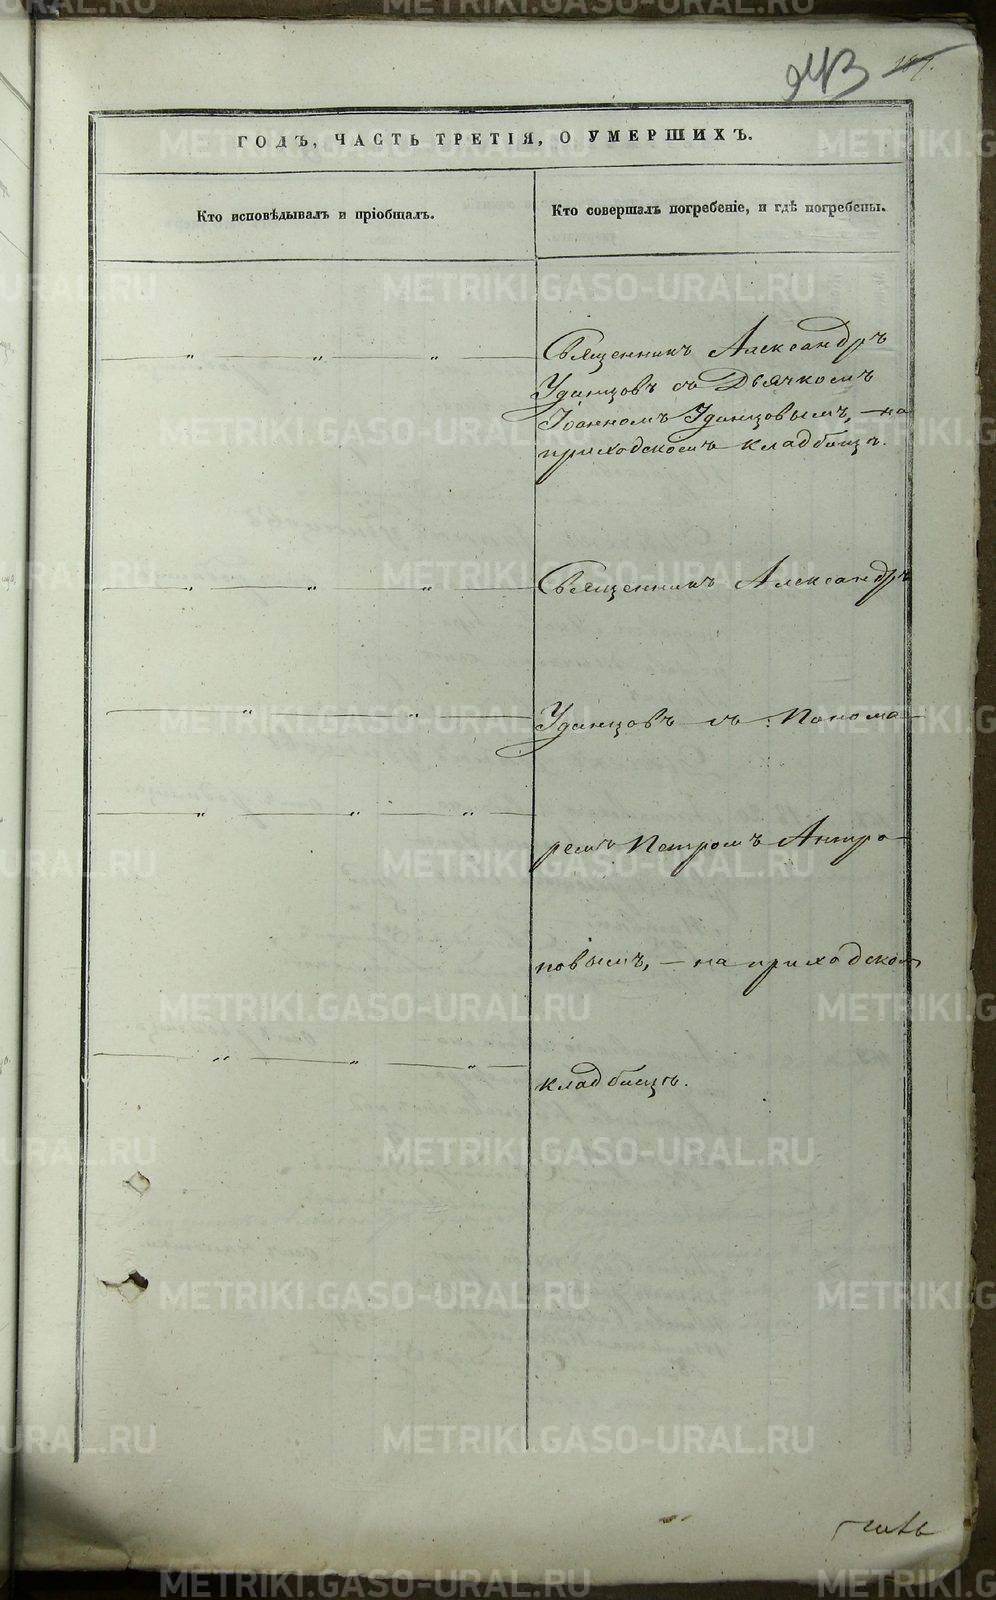 243
ГОДЪ, ЧАСТЬ ТРЕТІЯ, О УМЕРШИХЪ.
Кто исповѣдывалъ и пріобщалъ.
Кто совершалъ погребеніе, и гдѣ погребены.
Священникъ Александръ
Удинцовъ съ Дьячкомъ
Іоанномъ Удинцовымъ, — на
приходскомъ кладбищѣ.
Священникъ Александръ
Удинцовъ съ Понома-
ремъ Петромъ Антро-
повымъ, — на приходском
кладбищѣ.
METRIKI.GASO-URAL.RU